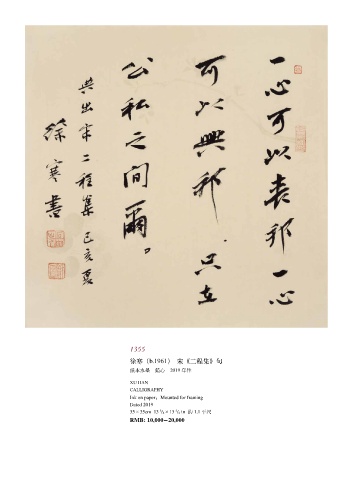 一心可以丧邦一心
可以興邦只在
公私之间爾。
典出宋二程集己亥夏
徐寒書
1355
徐寒（b.1961） 宋《二程集》句
紙本水墨 鏡心 2019年作
XU HAN
CALLIGRAPHY
Ink on paper; Mounted for framing
Dated 2019
RMB: 10,000—20,000